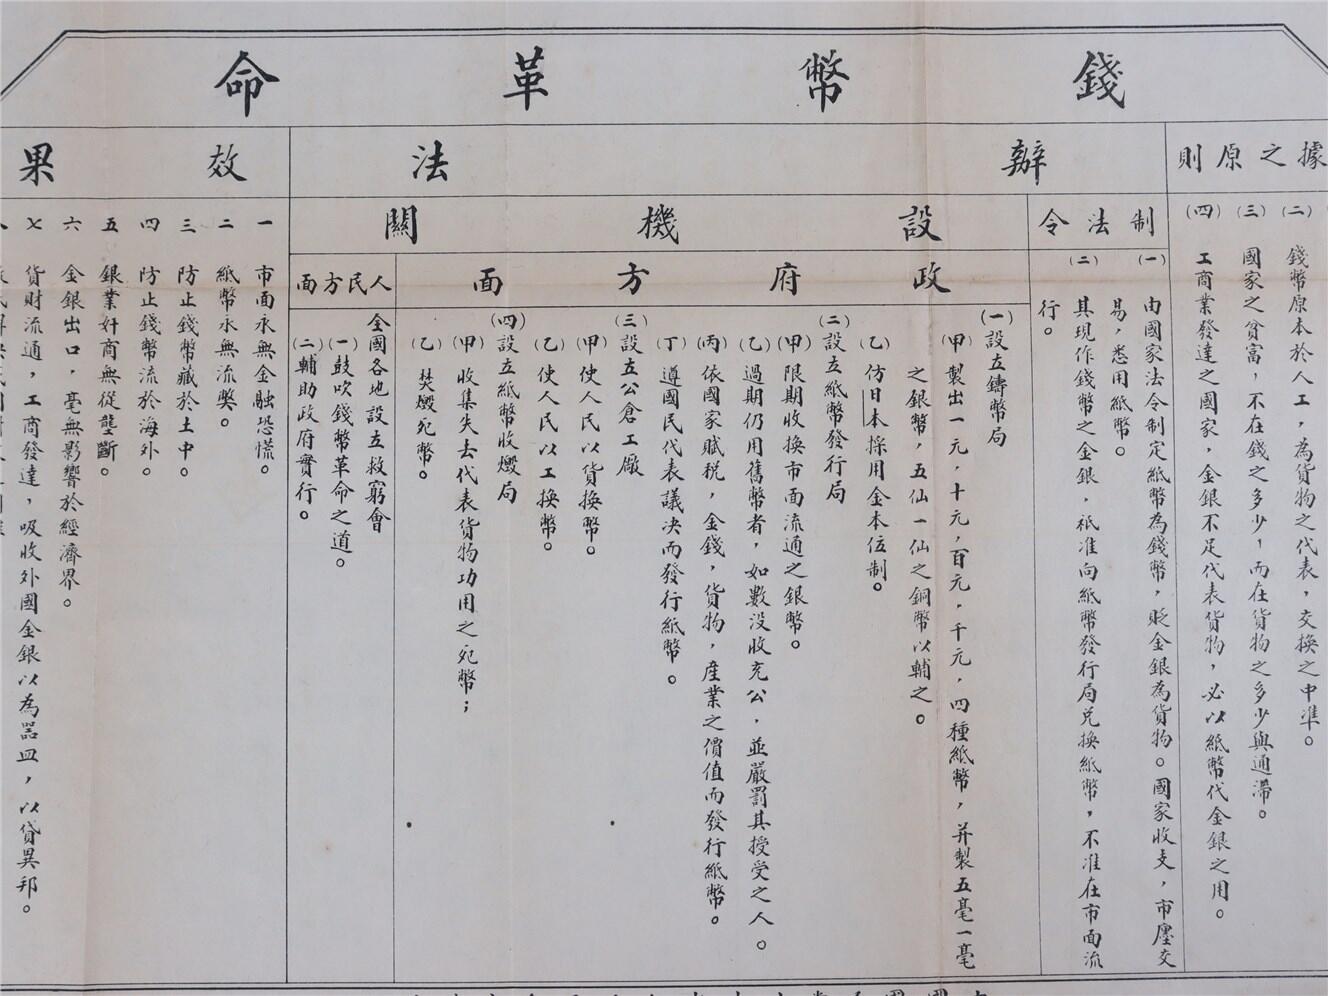 錢幣革命
據之原則
(二) 錢幣原本於人工，為貨物之代表，交換之中準。
(三) 國家之貧富，不在錢之多少，而在貨物之多少與通滯。
(四) 工商業發達之國家，金銀不足代表貨物，必以紙幣代金銀之用。
辦法
制法令
(一) 由國家法令制定紙幣為錢幣，貶金銀為貨物。國家收支，市廛交
易，悉用紙幣。
(二) 其現作錢幣之金銀，祇准向紙幣發行局兑換紙幣，不准在市面流
行。
設機關
政府方面
(一) 設立鑄幣局
(甲) 製出一元，十元，百元，千元，四種紙幣，并製五毫一毫
之銀幣，五仙一仙之銅幣以輔之。
(乙) 仿日本採用金本位制。
(二) 設立紙幣發行局
(甲) 限期收換市面流通之銀幣。
(乙) 過期仍用舊幣者，如數没收充公，並嚴罰其授受之人。
(丙) 依國家賦税，金錢，貨物，産業之價值而發行紙幣。
(丁) 遵國民代表議决而發行紙幣。
(三) 設立公倉工廠
(甲) 使人民以貨換幣。
(乙) 使人民以工換幣。
(四) 設立紙幣收燬局
(甲) 收集失去代表貨物功用之死幣；
(乙) 焚燬死幣。
人民方面
全國各地設立救窮會
(一) 鼓吹錢幣革命之道。
(二) 輔助政府實行。
效果
一 市面永無金融恐慌。
二 紙幣永無流獘。
三 防止錢幣藏於土中。
四 防止錢幣流於海外。
五 銀業奸商無從壟斷。
六 金銀出口，毫無影響於經濟界。
七 貨財流通，工商發達，吸收外國金銀以為器皿，以貸異邦。
八